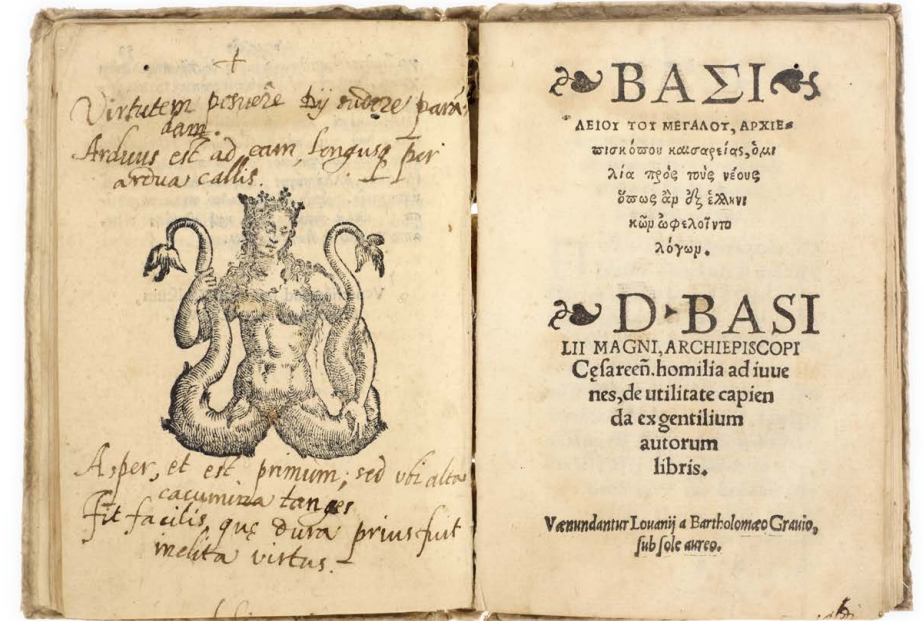 Virtutem posuêre dij sudore paran
dam.
Arduus est ad eam, longusq; per
ardua callis.
Asper, et est primum; sed vbi alta
cacumina tanges
Fit facilis, quę dura prius fuit
inclita virtus.
ΒΑΣΙ
ΛΕΙΟΥ ΤΟΥ ΜΕΓΑΛΟΥ, ΑΡΧΙΕ-
πισκόπου καισαρείας, ὁμι
λία πρὸς τοὺς νέους
ὅπως ἂν ἐξ ἑλληνι
κῶν ὠφελοῖντο
λόγων.
D. BASI
LII MAGNI, ARCHIEPISCOPI
Cęsareeñ. homilia ad iuue
nes, de utilitate capien
da ex gentilium
autorum
libris.
Vænundantur Louanij a Bartholomæo Grauio,
sub sole aureo.